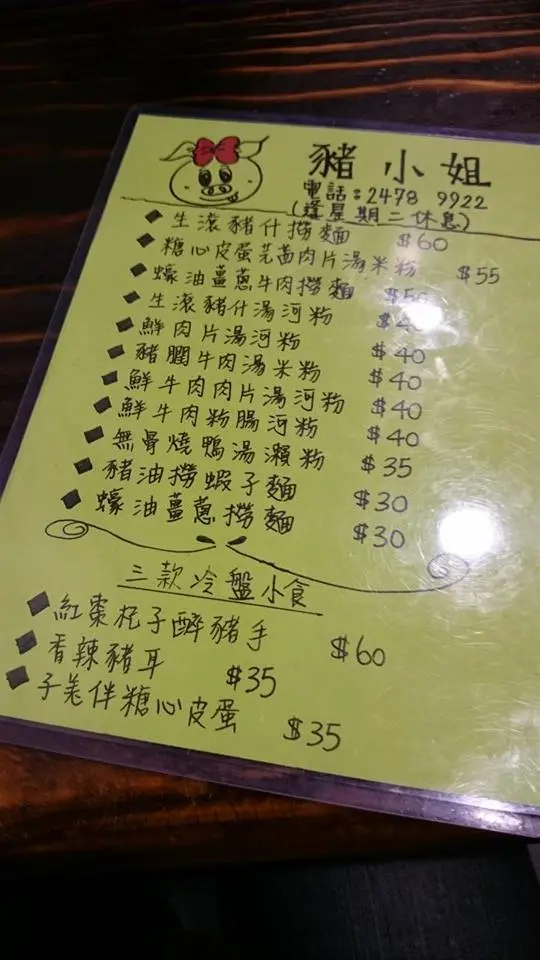 豬小姐
電話:2478 9922
(逢星期二休息)
生滾豬什撈麵 $60
糖心皮蛋芫茜肉片湯米粉 $55
蠔油薑蔥牛肉撈麵 $50
生滾豬什湯河粉
鮮肉片湯河粉 $40
豬膶牛肉湯米粉 $40
鮮牛肉肉片湯河粉 $40
鮮牛肉粉腸河粉 $40
無骨燒鴨湯瀨粉 $35
豬油撈蝦子麵 $30
蠔油薑蔥撈麵 $30
三款冷盤小食
紅棗杞子醉豬手 $60
香辣豬耳 $35
子羌伴糖心皮蛋 $35